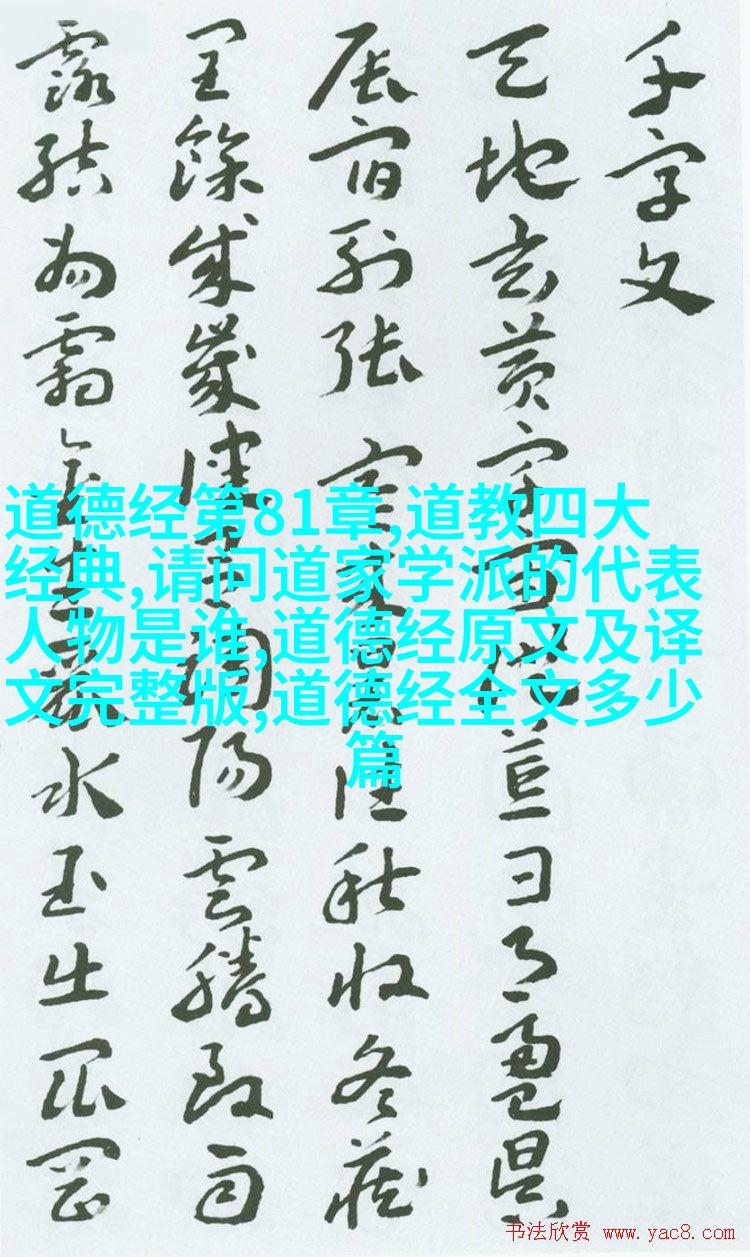 千字文
天地玄黄宇宙洪荒日月盈昃
辰宿列張寒來暑往秋收冬藏
閏餘成歲律呂調陽雲騰致雨
露結為霜金生麗水玉出崑岡
道德经第81章,道教四大
经典,请问道家学派的代表
人物是谁,道德经原文及译
文完整版,道德经全文多少
篇
书法欣赏 www.yac8.com